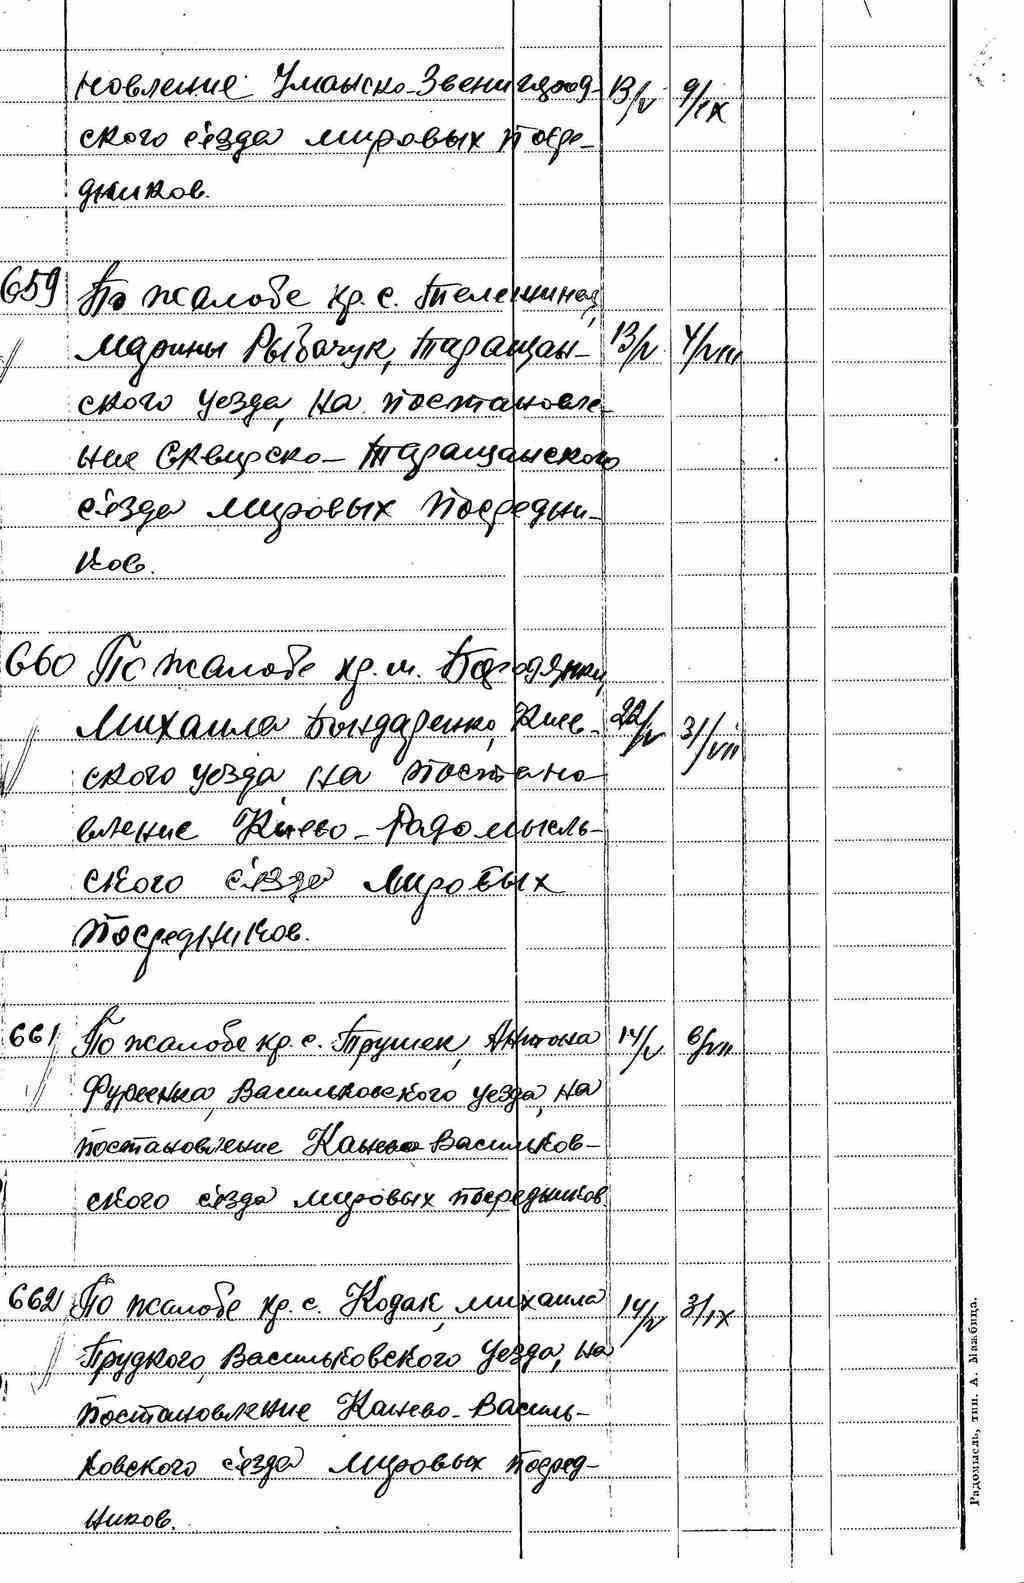 новление Уманско-Звенигород- 13/V 9/IX
ского с'езда мировых посре-
дников.
659 По жалобе кр. с. Телешинец,
Марины Рыбачук, Таращан- 13/V 4/VIII
ского уезда, на постановле-
ние Сквирско-Таращанского
с'езда мировых посредни-
ков.
660 По жалобе кр. м. Бородянки,
Михаила Бондаренко, Киев- 22/V 31/VII
ского уезда на постано-
вление Киево-Радомысль-
ского с'езда мировых
посредников.
661 По жалобе кр. с. Трушек, Антона 14/V 6/VII
Васильковского уезда, на
постановление Канево-Васильков-
ского с'езда мировых посредников.
662 По жалобе кр. с. Кодак, Михаила 14/V 3/IX
Прудкого, Васильковского уезда, на
постановление Канево-Василь-
ковского с'езда мировых посред-
ников.
Радомысль, тип. А. Мажбица.